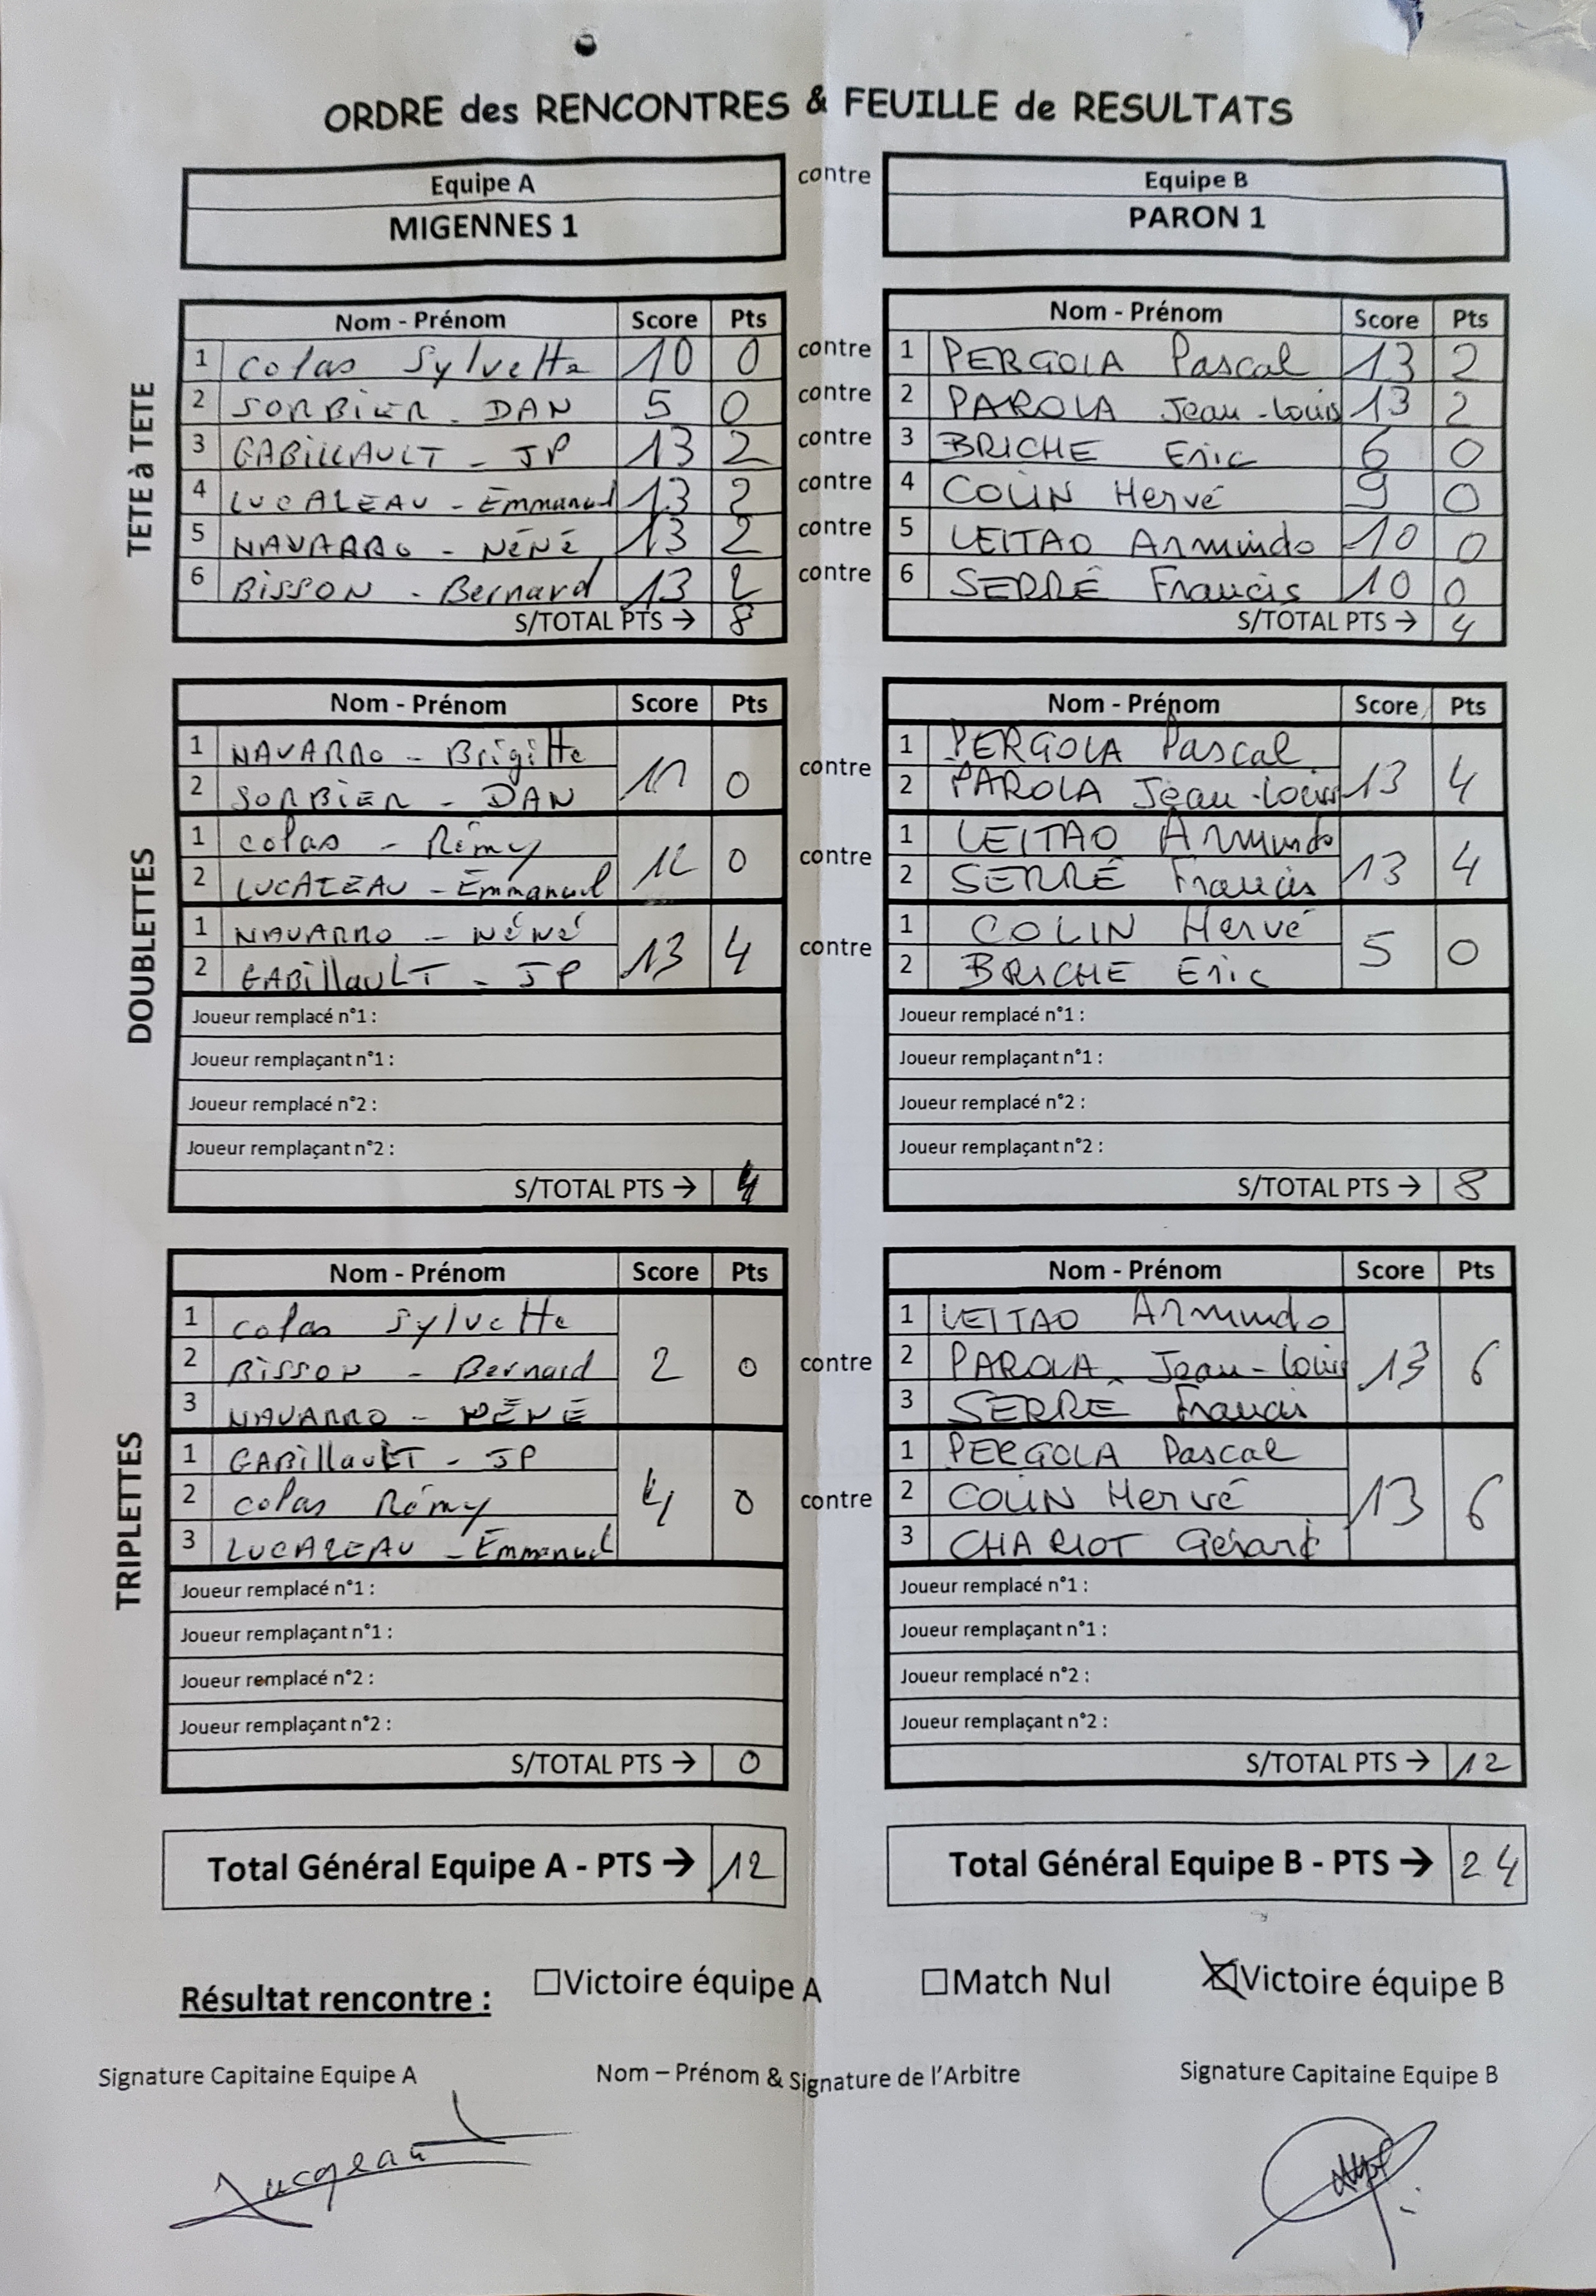 ORDRE des RENCONTRES & FEUILLE de RESULTATS
Equipe A contre Equipe B
MIGENNES 1 PARON 1
TETE à TETE
Nom - Prénom Score Pts Nom - Prénom Score Pts
1 Colas Sylvette 10 0 contre 1 PERGOLA Pascal 13 2
2 SORBIER - DAN 5 0 contre 2 PAROLA Jean-Louis 13 2
3 GABILLAULT - JP 13 2 contre 3 BRICHE Eric 6 0
4 LUCAZEAU - Emmanuel 13 2 contre 4 COLIN Hervé 9 0
5 NAVARRO - NéNé 13 2 contre 5 LEITAO Armindo 10 0
6 BISSON - Bernard 13 2 contre 6 SERRÉ Francis 10 0
S/TOTAL PTS → 8 S/TOTAL PTS → 4
DOUBLETTES
Nom - Prénom Score Pts Nom - Prénom Score Pts
1 NAVARRO - Brigitte 11 0 contre 1 PERGOLA Pascal 13 4
2 SORBIER - DAN 2 PAROLA Jean-Louis
1 Colas - Rémy 12 0 contre 1 LEITAO Armindo 13 4
2 LUCAZEAU - Emmanuel 2 SERRÉ Francis
1 NAVARRO - NéNé 13 4 contre 1 COLIN Hervé 5 0
2 GABillauLT - JP 2 BRICHE Eric
Joueur remplacé n°1 : Joueur remplacé n°1 :
Joueur remplaçant n°1 : Joueur remplaçant n°1 :
Joueur remplacé n°2 : Joueur remplacé n°2 :
Joueur remplaçant n°2 : Joueur remplaçant n°2 :
S/TOTAL PTS → 4 S/TOTAL PTS → 8
TRIPLETTES
Nom - Prénom Score Pts Nom - Prénom Score Pts
1 Colas Sylvette 1 LEITAO Armindo
2 BISSON - Bernard 2 0 contre 2 PAROLA Jean-Louis 13 6
3 NAVARRO - NÉNÉ 3 SERRE Francis
1 GABillauLT - JP 1 PERGOLA Pascal
2 Colas Rémy 4 0 contre 2 COLIN Hervé 13 6
3 LUCAZEAU - Emmanuel 3 CHARIOT Gérard
Joueur remplacé n°1 : Joueur remplacé n°1 :
Joueur remplaçant n°1 : Joueur remplaçant n°1 :
Joueur remplacé n°2 : Joueur remplacé n°2 :
Joueur remplaçant n°2 : Joueur remplaçant n°2 :
S/TOTAL PTS → 0 S/TOTAL PTS → 12
Total Général Equipe A - PTS → 12 Total Général Equipe B - PTS → 24
Résultat rencontre : Victoire équipe A Match Nul Victoire équipe B
Signature Capitaine Equipe A Nom – Prénom & Signature de l'Arbitre Signature Capitaine Equipe B